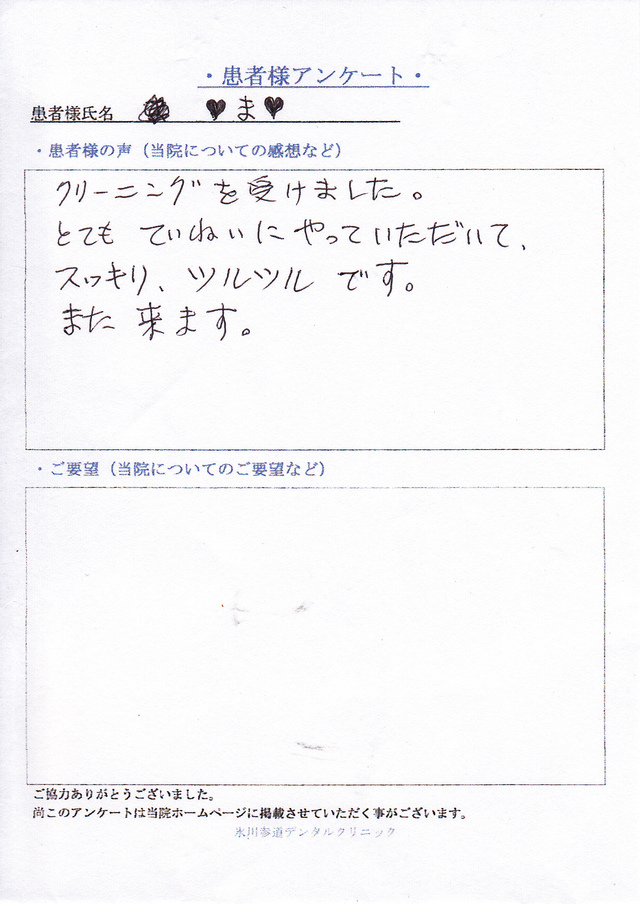 ・患者様アンケート・
患者様氏名 ♥ま♥
・患者様の声（当院についての感想など）
クリーニングを受けました。
とても ていねいに やっていただいて、
スッキリ、ツルツル です。
また 来ます。
・ご要望（当院についてのご要望など）
ご協力ありがとうございました。
尚このアンケートは当院ホームページに掲載させていただく事がございます。
氷川参道デンタルクリニック